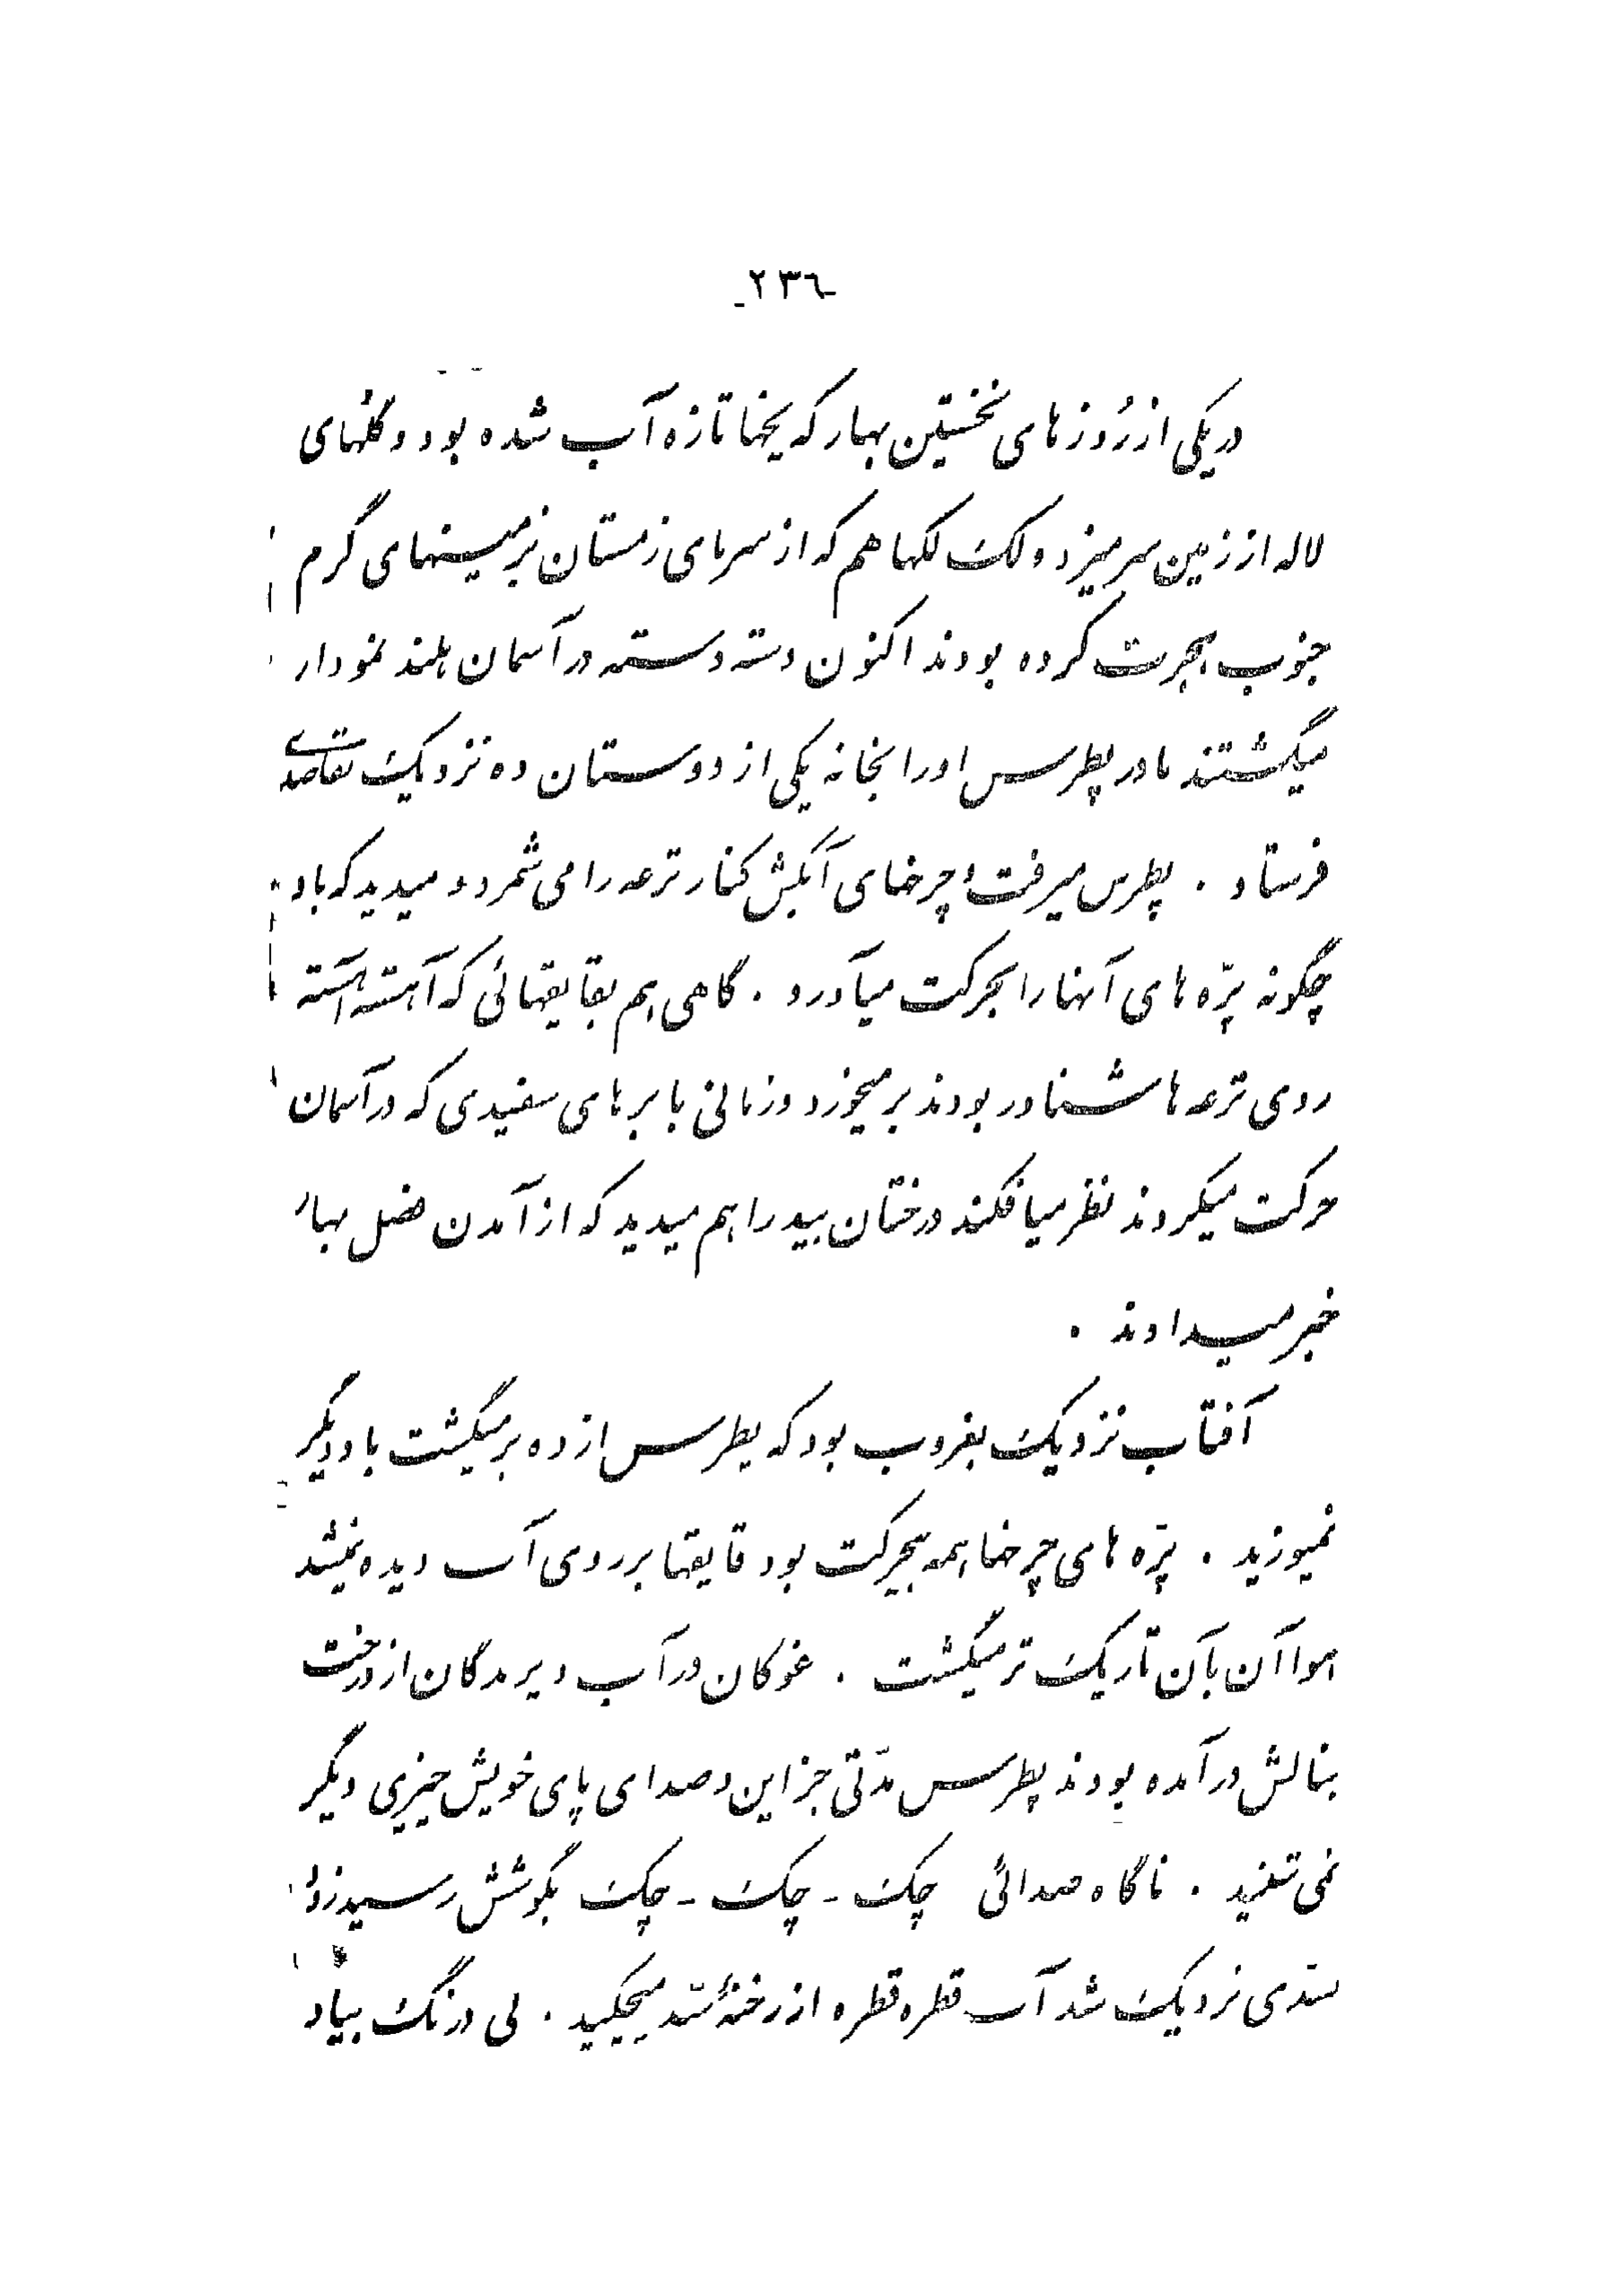 -۲۳٦-
در یکی از رُوزهای نخستین بهار که یخها تازه آب شده بود و گلهای
لاله از زمین سر میزد و لک لکها هم که از سرمای زمستان بزمینهای گرم
جنوب هجرت کرده بودند اکنون دسته دسته در آسمان بلند نمودار
میگشتند مادر پطرس او را بخانه یکی از دوستان ده نزدیک بقاصدی
فرستاد . پطرس میرفت و چرخای آبکش کنار ترعه را می شمرد و میدید که باد
چگونه پرّه های آنها را بحرکت میآورد . گاهی هم بقایقهائی که آهسته آهسته
روی ترعه ها شناور بودند بر میخورد و زمانی با برهای سفیدی که در آسمان
حرکت میکردند نظر میافکند درختان بید را هم میدید که از آمدن فصل بهار
خبر میدادند .
آفتاب نزدیک بغروب بود که پطرس از ده بر میگشت باد دیگر
نمیوزید . پرّه های چرخها همه بیحرکت بود قایقها بر روی آب دیده نمیشد
هوا آن بآن تاریک تر میگشت . غوکان در آب و پرندگان از درخت
بنالش در آمده بودند پطرس مدّتی جز این و صدای پای خویش چیزی دیگر
نمی شنید . ناگاه صدائی چک - چک - چک بگوشش رسید
سدی نزدیک شد آب قطره قطره از رخنهٔ سّد میچکید . بی درنگ بیاد